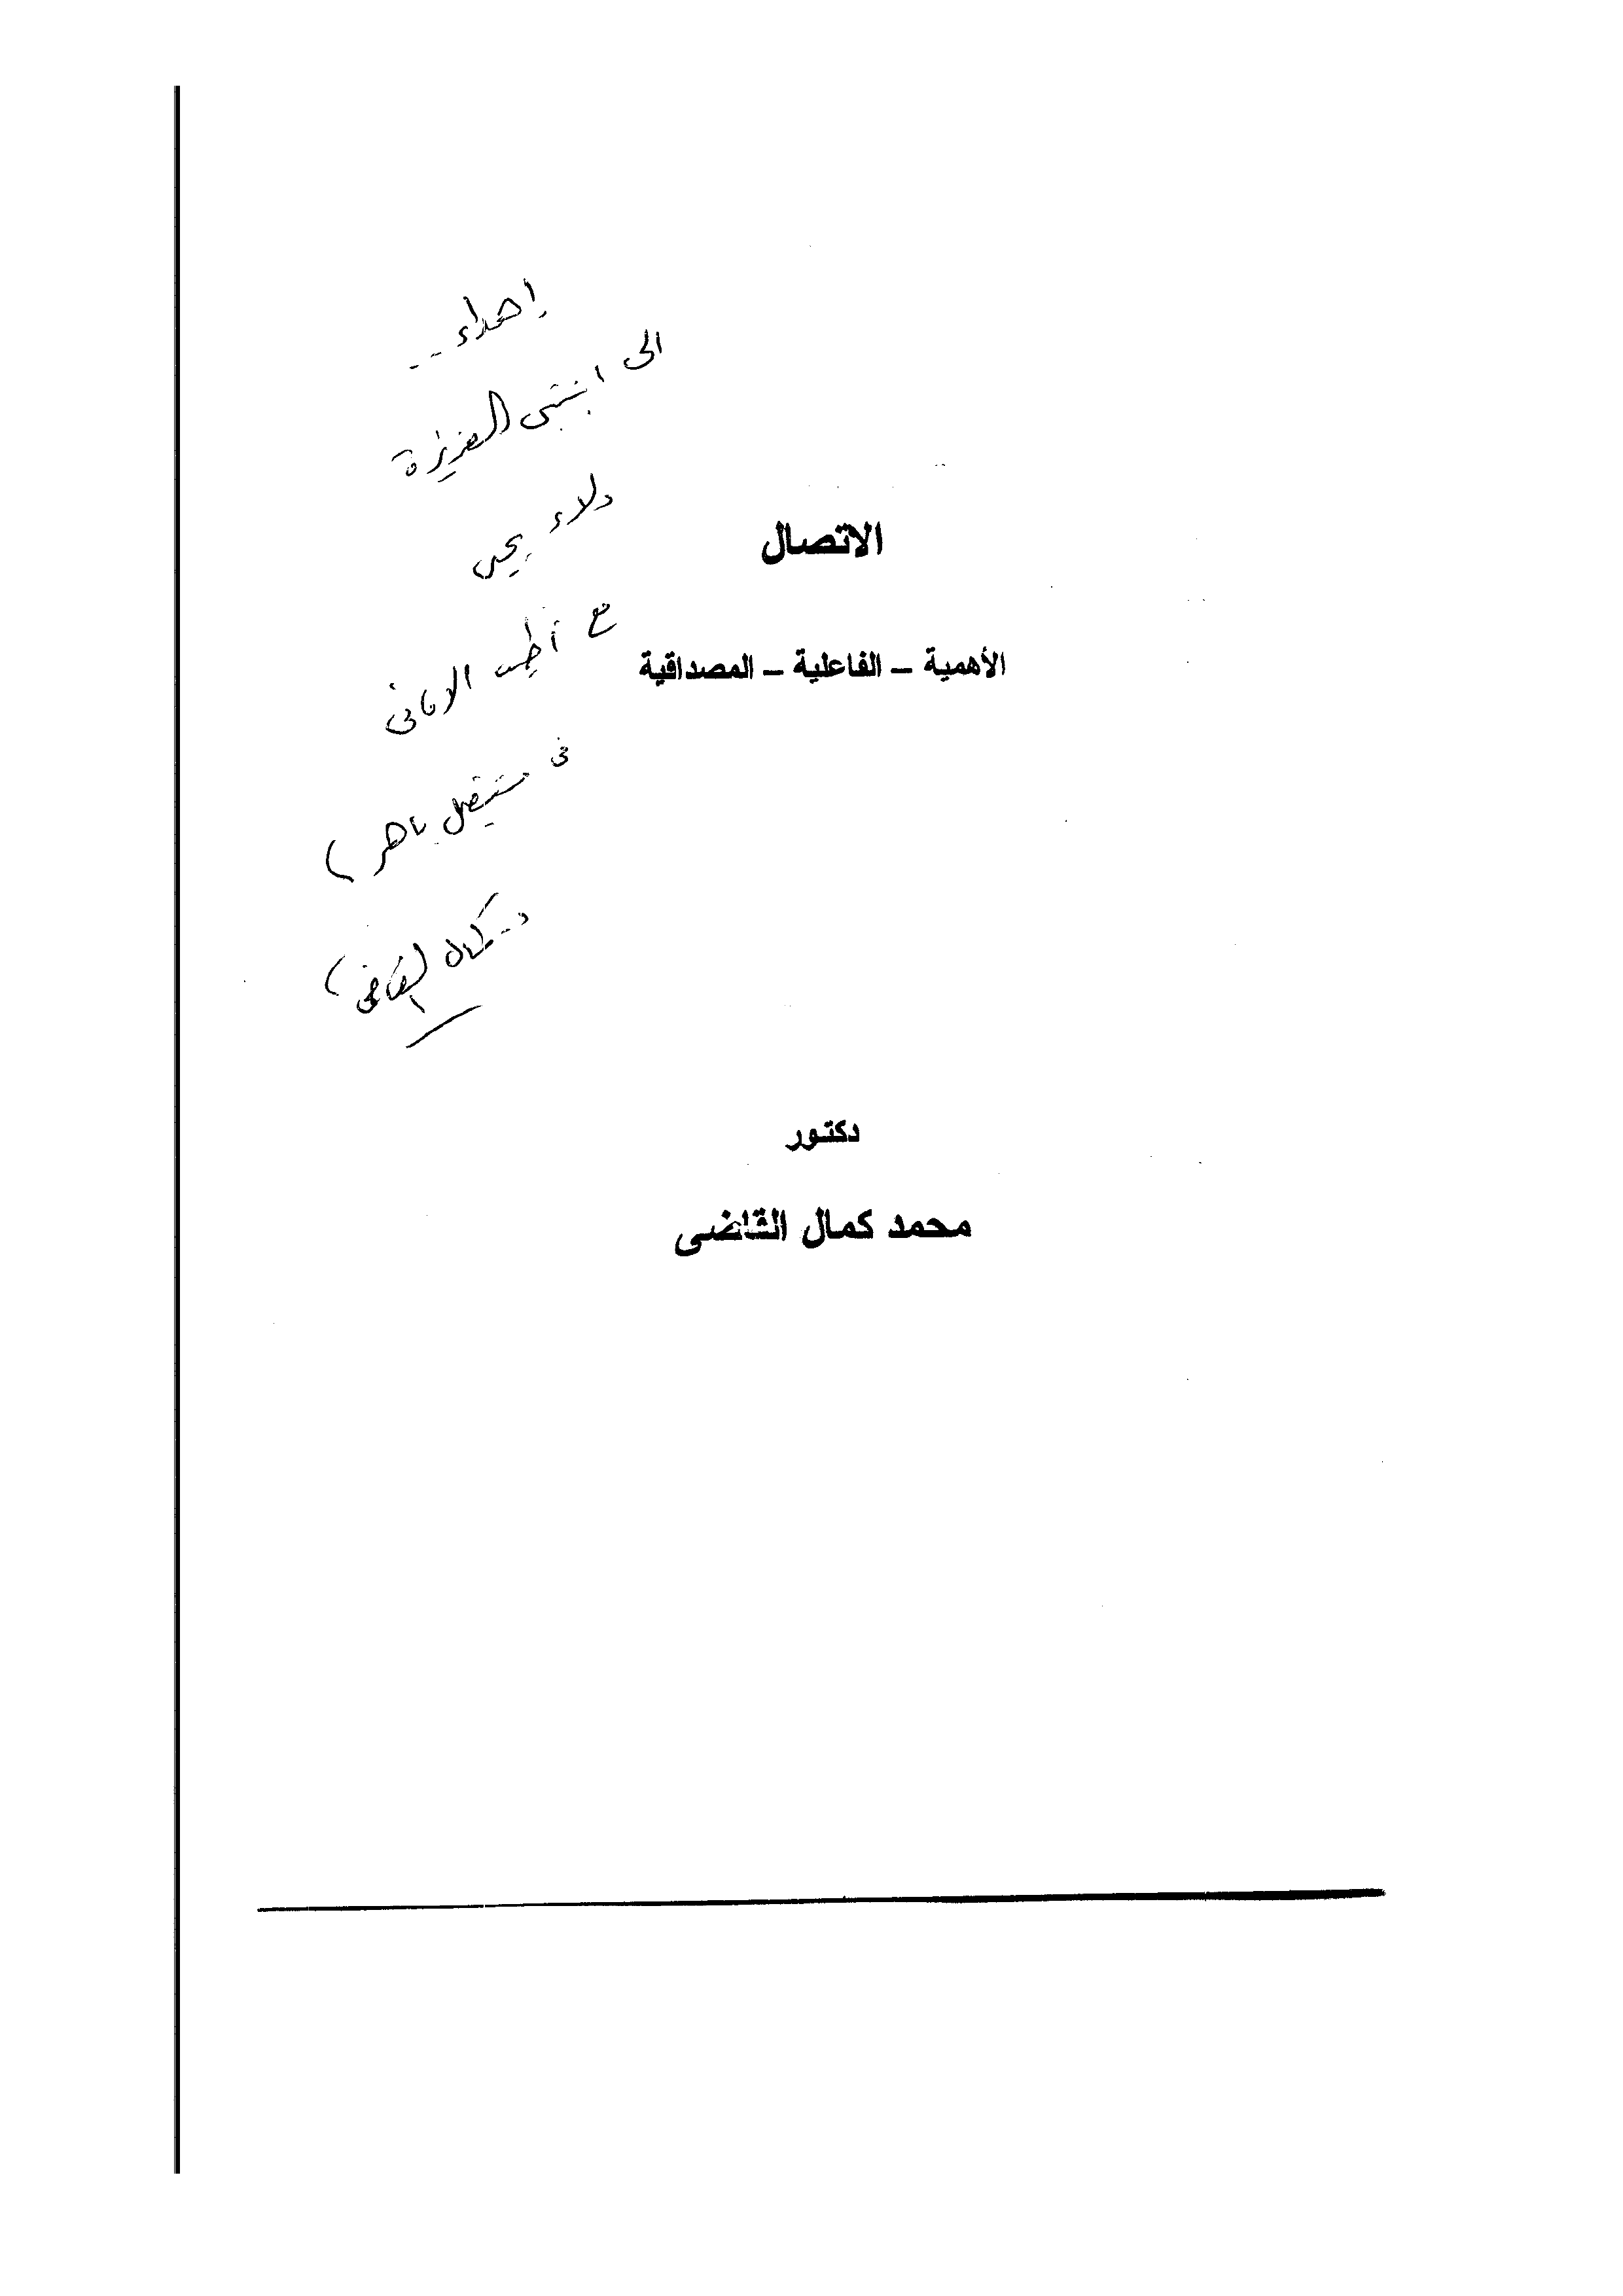 إهداء --
الى ابنتى العزيزة
ولاء يحى
مع أطيب الامانى
فى مستقبل باهر
د. كمال القاضى
الاتصال
الأهمية – الفاعلية – المصداقية
دكتور
محمد كمال القاضى